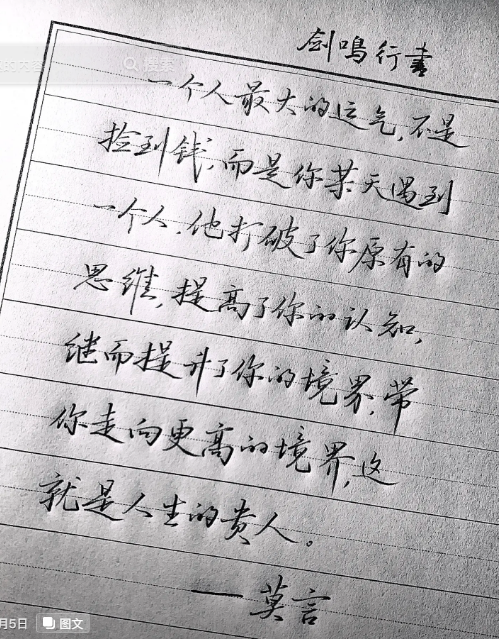 剑鸣行書
一个人最大的运气,不是
捡到钱,而是你某天遇到
一个人,他打破了你原有的
思维,提高了你的认知,
继而提升了你的境界,带
你走向更高的境界,这
就是人生的贵人。
—莫言
月5日 图文